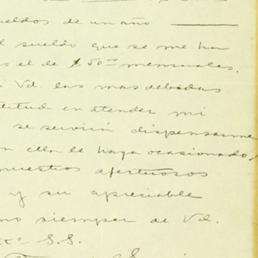 sueldos de un año
l sueldo que se me ha
es el de $50.00 mensuales.
i Vd. las mas debidas
titud en atender mi
se servirá dispensarme
n ello le haya ocasionado,
nuestros afectuosos
y su apreciable
mo siempre de Vd.
S.S.